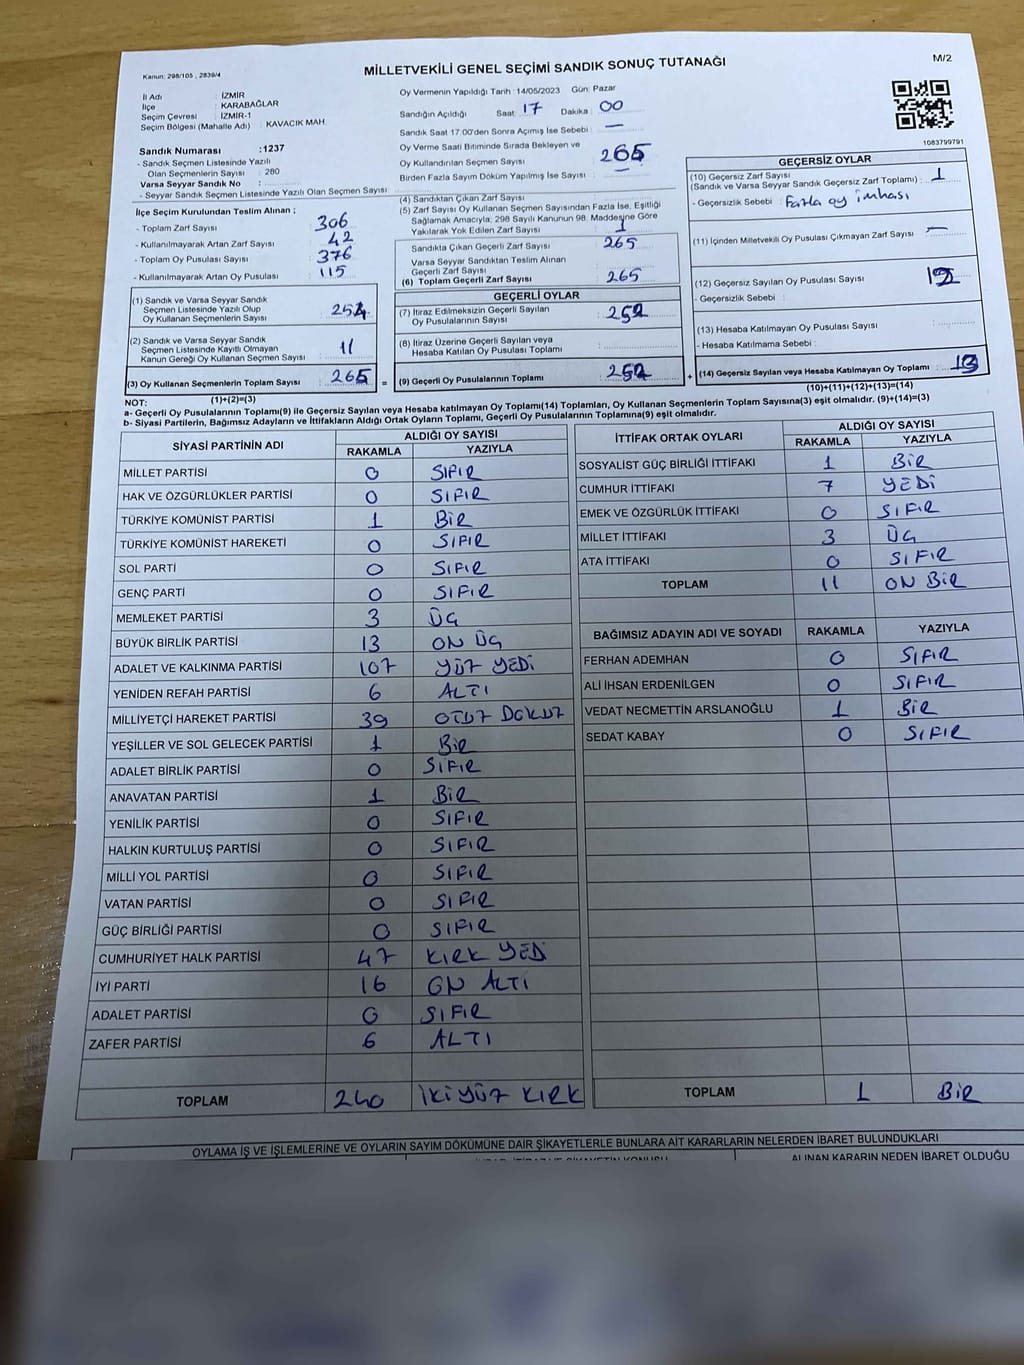 Kanun: 298/105 , 2839/4
MİLLETVEKİLİ GENEL SEÇİMİ SANDIK SONUÇ TUTANAĞI
M/2
İl Adı : İZMİR
İlçe : KARABAĞLAR
Seçim Çevresi : İZMİR-1
Seçim Bölgesi (Mahalle Adı) : KAVACIK MAH.
Sandık Numarası :1237
- Sandık Seçmen Listesinde Yazılı
Olan Seçmenlerin Sayısı : 280
Varsa Seyyar Sandık No :
- Seyyar Sandık Seçmen Listesinde Yazılı Olan Seçmen Sayısı :
Oy Vermenin Yapıldığı Tarih : 14/05/2023 Gün: Pazar
Sandığın Açıldığı Saat : 17 Dakika : 00
Sandık Saat 17.00'den Sonra Açımış İse Sebebi : —
Oy Verme Saati Bitiminde Sırada Bekleyen ve
Oy Kullandırılan Seçmen Sayısı : 265
Birden Fazla Sayım Döküm Yapılmış İse Sayısı : —
1083799791
İlçe Seçim Kurulundan Teslim Alınan ;
- Toplam Zarf Sayısı : 306
- Kullanılmayarak Artan Zarf Sayısı : 42
- Toplam Oy Pusulası Sayısı : 376
- Kullanılmayarak Artan Oy Pusulası : 115
(1) Sandık ve Varsa Seyyar Sandık
Seçmen Listesinde Yazılı Olup
Oy Kullanan Seçmenlerin Sayısı : 254
(2) Sandık ve Varsa Seyyar Sandık
Seçmen Listesinde Kayıtlı Olmayan
Kanun Gereği Oy Kullanan Seçmen Sayısı : 11
(3) Oy Kullanan Seçmenlerin Toplam Sayısı : 265 =
(4) Sandıktan Çıkan Zarf Sayısı
(5) Zarf Sayısı Oy Kullanan Seçmen Sayısından Fazla İse, Eşitliği
Sağlamak Amacıyla; 298 Sayılı Kanunun 98. Maddesine Göre
Yakılarak Yok Edilen Zarf Sayısı : 1
Sandıkta Çıkan Geçerli Zarf Sayısı : 265
Varsa Seyyar Sandıktan Teslim Alınan
Geçerli Zarf Sayısı :
(6) Toplam Geçerli Zarf Sayısı : 265
GEÇERLİ OYLAR
(7) İtiraz Edilmeksizin Geçerli Sayılan
Oy Pusulalarının Sayısı : 252
(8) İtiraz Üzerine Geçerli Sayılan veya
Hesaba Katılan Oy Pusulası Toplamı :
(9) Geçerli Oy Pusulalarının Toplamı : 252 +
GEÇERSİZ OYLAR
(10) Geçersiz Zarf Sayısı
(Sandık ve Varsa Seyyar Sandık Geçersiz Zarf Toplamı) : 1
- Geçersizlik Sebebi : Fazla oy imhası
(11) İçinden Milletvekili Oy Pusulası Çıkmayan Zarf Sayısı : —
(12) Geçersiz Sayılan Oy Pusulası Sayısı : 12
- Geçersizlik Sebebi :
(13) Hesaba Katılmayan Oy Pusulası Sayısı :
- Hesaba Katılmama Sebebi :
(14) Geçersiz Sayılan veya Hesaba Katılmayan Oy Toplamı : 13
(10)+(11)+(12)+(13)=(14)
NOT: (1)+(2)=(3)
a- Geçerli Oy Pusulalarının Toplamı(9) ile Geçersiz Sayılan veya Hesaba katılmayan Oy Toplamı(14) Toplamları, Oy Kullanan Seçmenlerin Toplam Sayısına(3) eşit olmalıdır. (9)+(14)=(3)
b- Siyasi Partilerin, Bağımsız Adayların ve İttifakların Aldığı Ortak Oyların Toplamı, Geçerli Oy Pusulalarının Toplamına(9) eşit olmalıdır.
SİYASİ PARTİNİN ADI ALDIĞI OY SAYISI
RAKAMLA YAZIYLA
MİLLET PARTİSİ 0 SIFIR
HAK VE ÖZGÜRLÜKLER PARTİSİ 0 SIFIR
TÜRKİYE KOMÜNİST PARTİSİ 1 BİR
TÜRKİYE KOMÜNİST HAREKETİ 0 SIFIR
SOL PARTİ 0 SIFIR
GENÇ PARTİ 0 SIFIR
MEMLEKET PARTİSİ 3 ÜÇ
BÜYÜK BİRLİK PARTİSİ 13 ON ÜÇ
ADALET VE KALKINMA PARTİSİ 107 YÜZ YEDİ
YENİDEN REFAH PARTİSİ 6 ALTI
MİLLİYETÇİ HAREKET PARTİSİ 39 OTUZ DOKUZ
YEŞİLLER VE SOL GELECEK PARTİSİ 1 BİR
ADALET BİRLİK PARTİSİ 0 SIFIR
ANAVATAN PARTİSİ 1 BİR
YENİLİK PARTİSİ 0 SIFIR
HALKIN KURTULUŞ PARTİSİ 0 SIFIR
MİLLİ YOL PARTİSİ 0 SIFIR
VATAN PARTİSİ 0 SIFIR
GÜÇ BİRLİĞİ PARTİSİ 0 SIFIR
CUMHURİYET HALK PARTİSİ 47 KIRK YEDİ
İYİ PARTİ 16 ON ALTI
ADALET PARTİSİ 0 SIFIR
ZAFER PARTİSİ 6 ALTI
TOPLAM 240 İKİ YÜZ KIRK
İTTİFAK ORTAK OYLARI ALDIĞI OY SAYISI
RAKAMLA YAZIYLA
SOSYALİST GÜÇ BİRLİĞİ İTTİFAKI 1 BİR
CUMHUR İTTİFAKI 7 YEDİ
EMEK VE ÖZGÜRLÜK İTTİFAKI 0 SIFIR
MİLLET İTTİFAKI 3 ÜÇ
ATA İTTİFAKI 0 SIFIR
TOPLAM 11 ON BİR
BAĞIMSIZ ADAYIN ADI VE SOYADI RAKAMLA YAZIYLA
FERHAN ADEMHAN 0 SIFIR
ALİ İHSAN ERDENİLGEN 0 SIFIR
VEDAT NECMETTİN ARSLANOĞLU 1 BİR
SEDAT KABAY 0 SIFIR
TOPLAM 1 BİR
OYLAMA İŞ VE İŞLEMLERİNE VE OYLARIN SAYIM DÖKÜMÜNE DAİR ŞİKAYETLERLE BUNLARA AİT KARARLARIN NELERDEN İBARET BULUNDUKLARI
ALINAN KARARIN NEDEN İBARET OLDUĞU